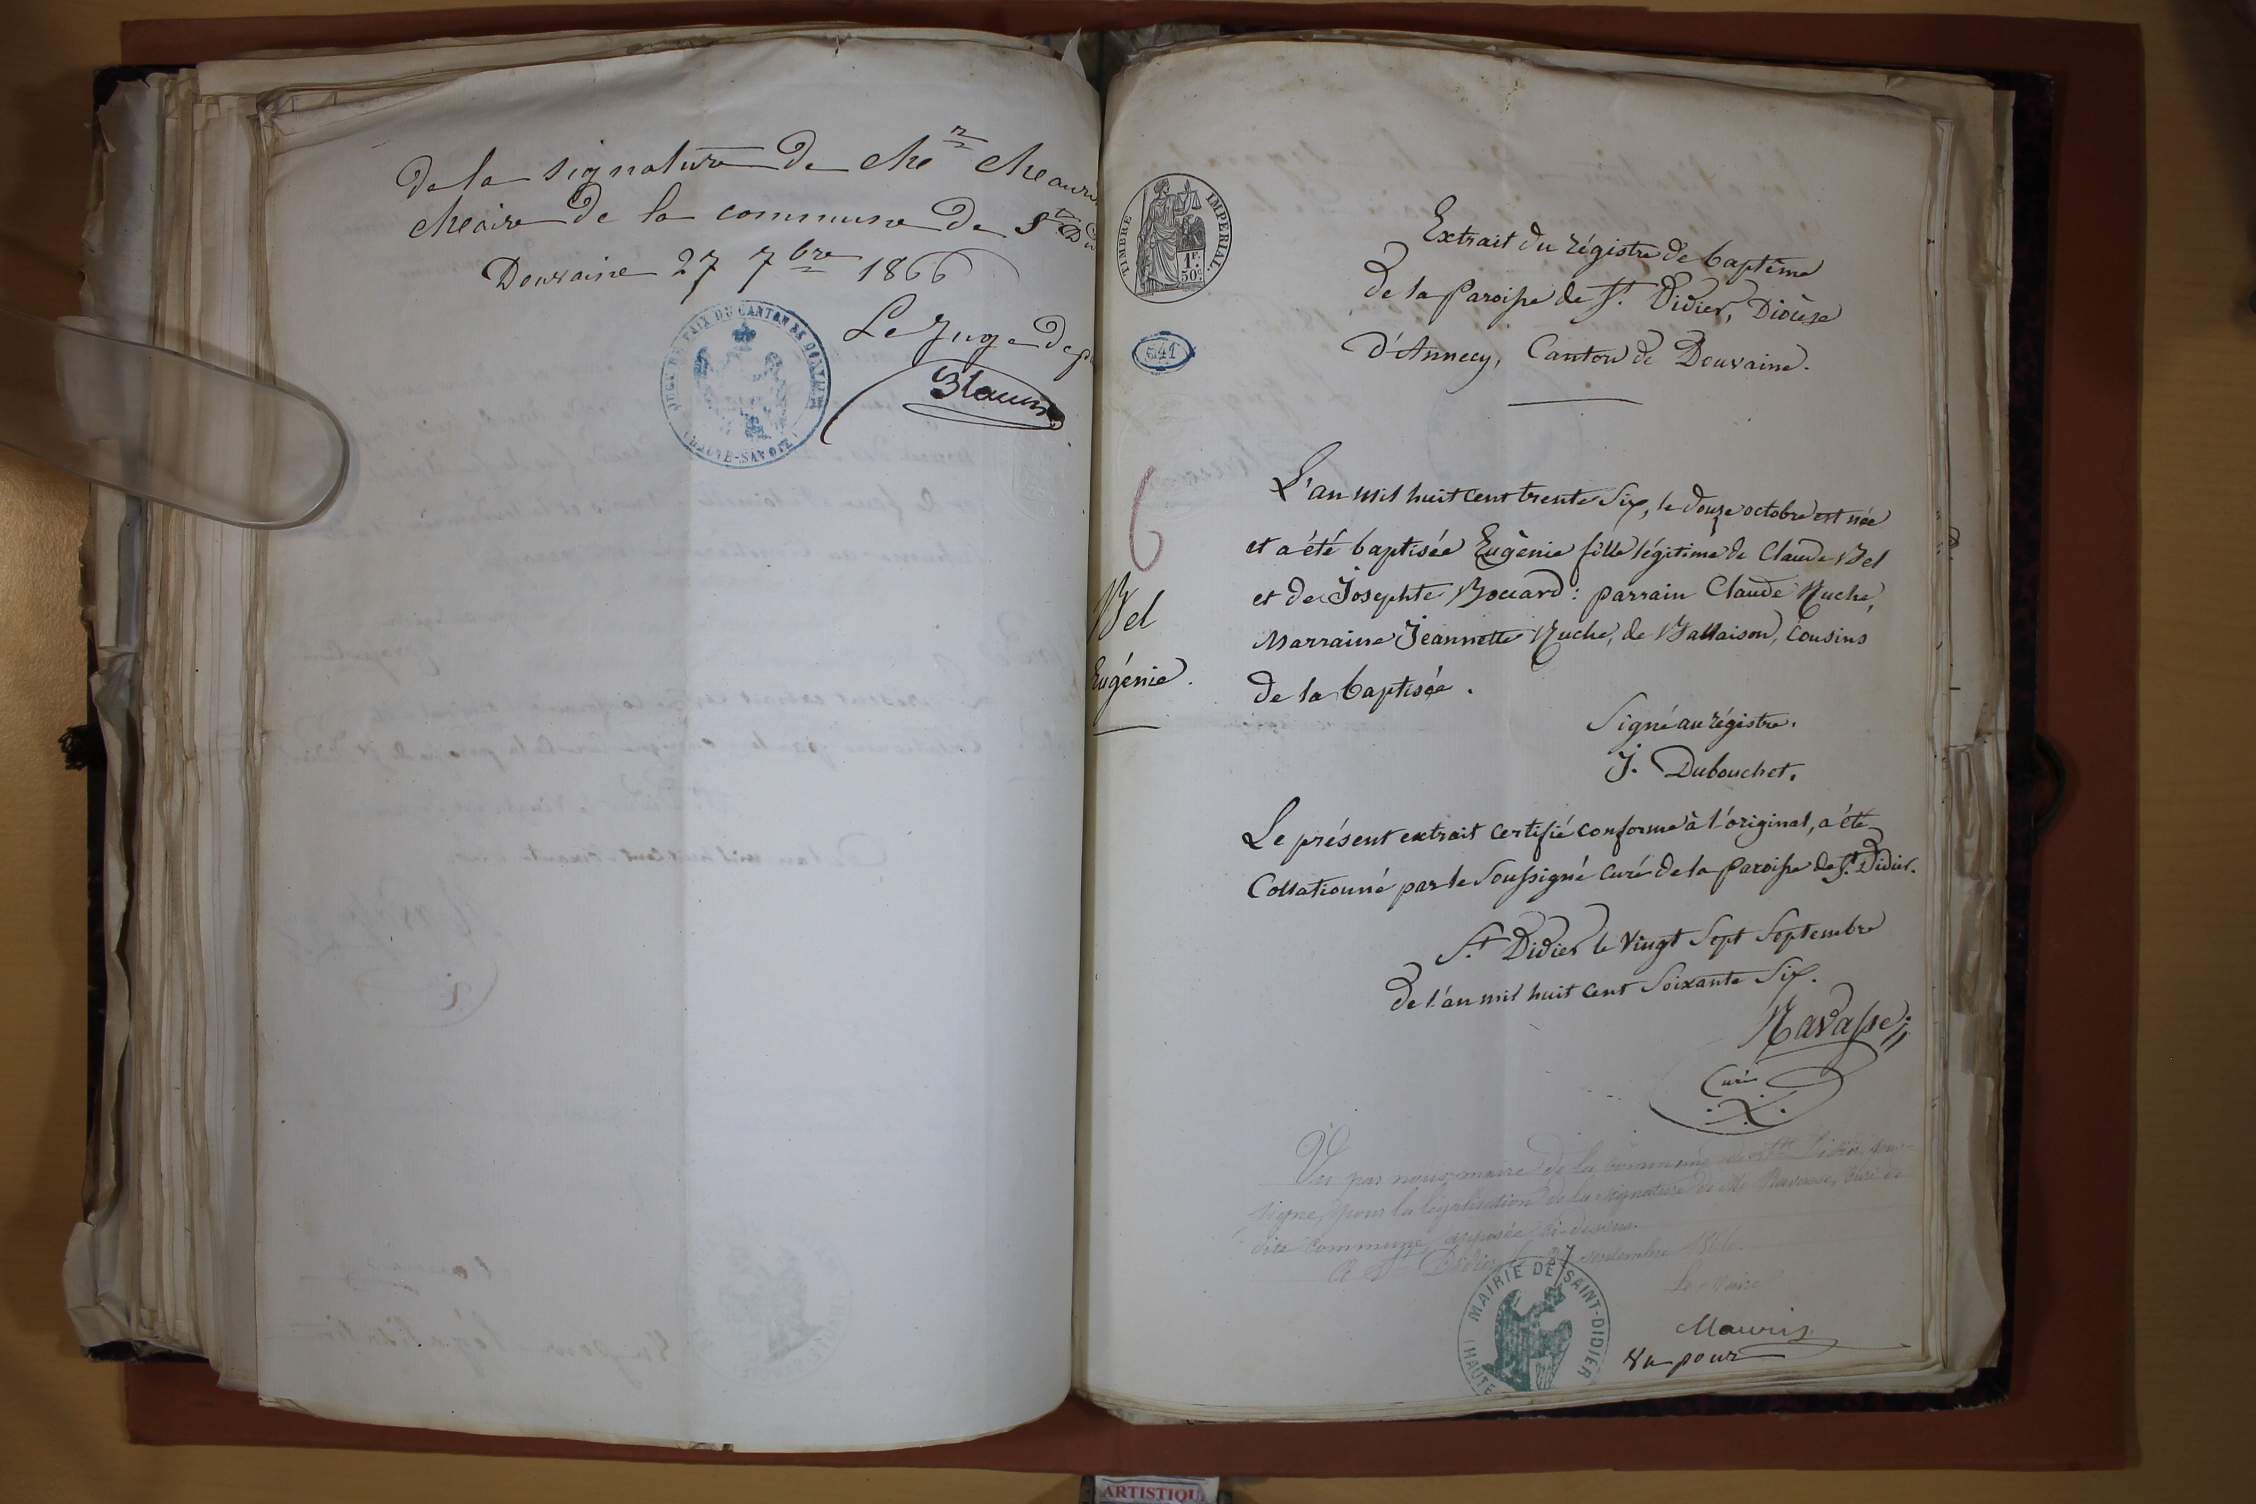 De la signature de Mr Mauris
Maire de la commune de St Di
Douvaine 27 7bre 1866
Le Juge de p
JUGE DE PAIX DU CANTON DE DOUVAINE
(HAUTE-SAVOIE)
TIMBRE IMPERIAL.
1F. 50C
541
Extrait du régistre de baptême
de la Paroisse de St. Didier, Diocèse
d'Annecy, Canton de Douvaine.
6
Bel
Eugénie.
L'an mil huit cent trente Six, le douze octobre est née
et a été baptisée Eugènie fille légitime de Claude Bel
et de Josephte Bocard : parrain Claude Ruche,
Marraine Jeannette Ruche, de Ballaison, Cousins
de la baptisée.
Signé au régistre.
J. Dubouchet.
Le présent extrait certifié conforme à l'original, a été
Collationné par le Soussigné Curé de la Paroisse de St. Didier.
St. Didier le Vingt Sept Septembre
de l'an mil huit cent Soixante Six.
Ravasse
Curé
Vu par nous maire de la commune de St Didier, sous-
signé, pour la légalisation de la signature de Mr Ravasse, Curé de
dite commune apposée ci-dessus.
A St Didier le 27 septembre 1866
Le Maire
Mauris
MAIRIE DE SAINT-DIDIER
(HAUTE
Vu pour
ARTISTIQU